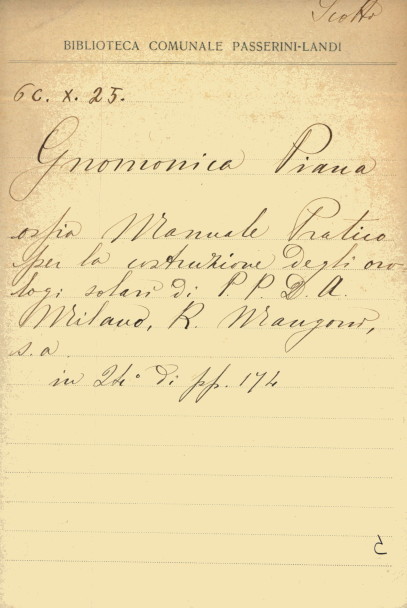 Scotto
BIBLIOTECA COMUNALE PASSERINI-LANDI
6C. X. 25.
Gnomonica Piana
ossia Manuale Pratico
per la costruzione degli oro-
logi solari di P. P. D. A.
Milano, R. Mangoni,
s. a.
in 24° di pp. 174